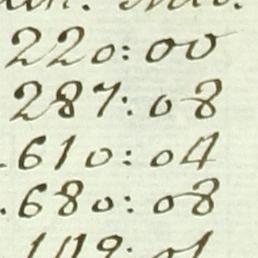 220: 00
287: 08
.610: 04
.680: 08